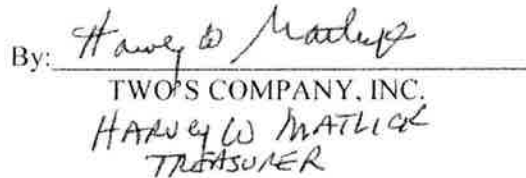 By: Harvey W Matlick
TWO'S COMPANY, INC.
HARVEY W MATLICK
TREASURER